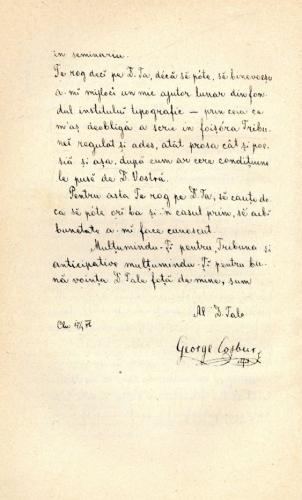 in seminariu.
Te rog deci pe D. Ta, décă se póte, să binevoesci
a-mi mijloci un mic ajutor lunar din fon-
dul institului tipografic — prin ceea ce
m'aș deobligă a scrie in foișóra Tribu-
nei regulat și ades, atât prosa cât și poe-
siă și așa, după cum ar cere condițiune
le puse de D. Vostră.
Pentru asta Te rog pe D. Ta, să cauți de
ca se póte ori ba și-n casul prim, să aibi
bunătate a-mi face cunoscut.
Mulțumindu-Ți pentru Tribuna si
anticipative mulțumindu-Ți pentru bu-
nă voința D. Tale față de mine, sum
Al D. Tale
George Coșbuc